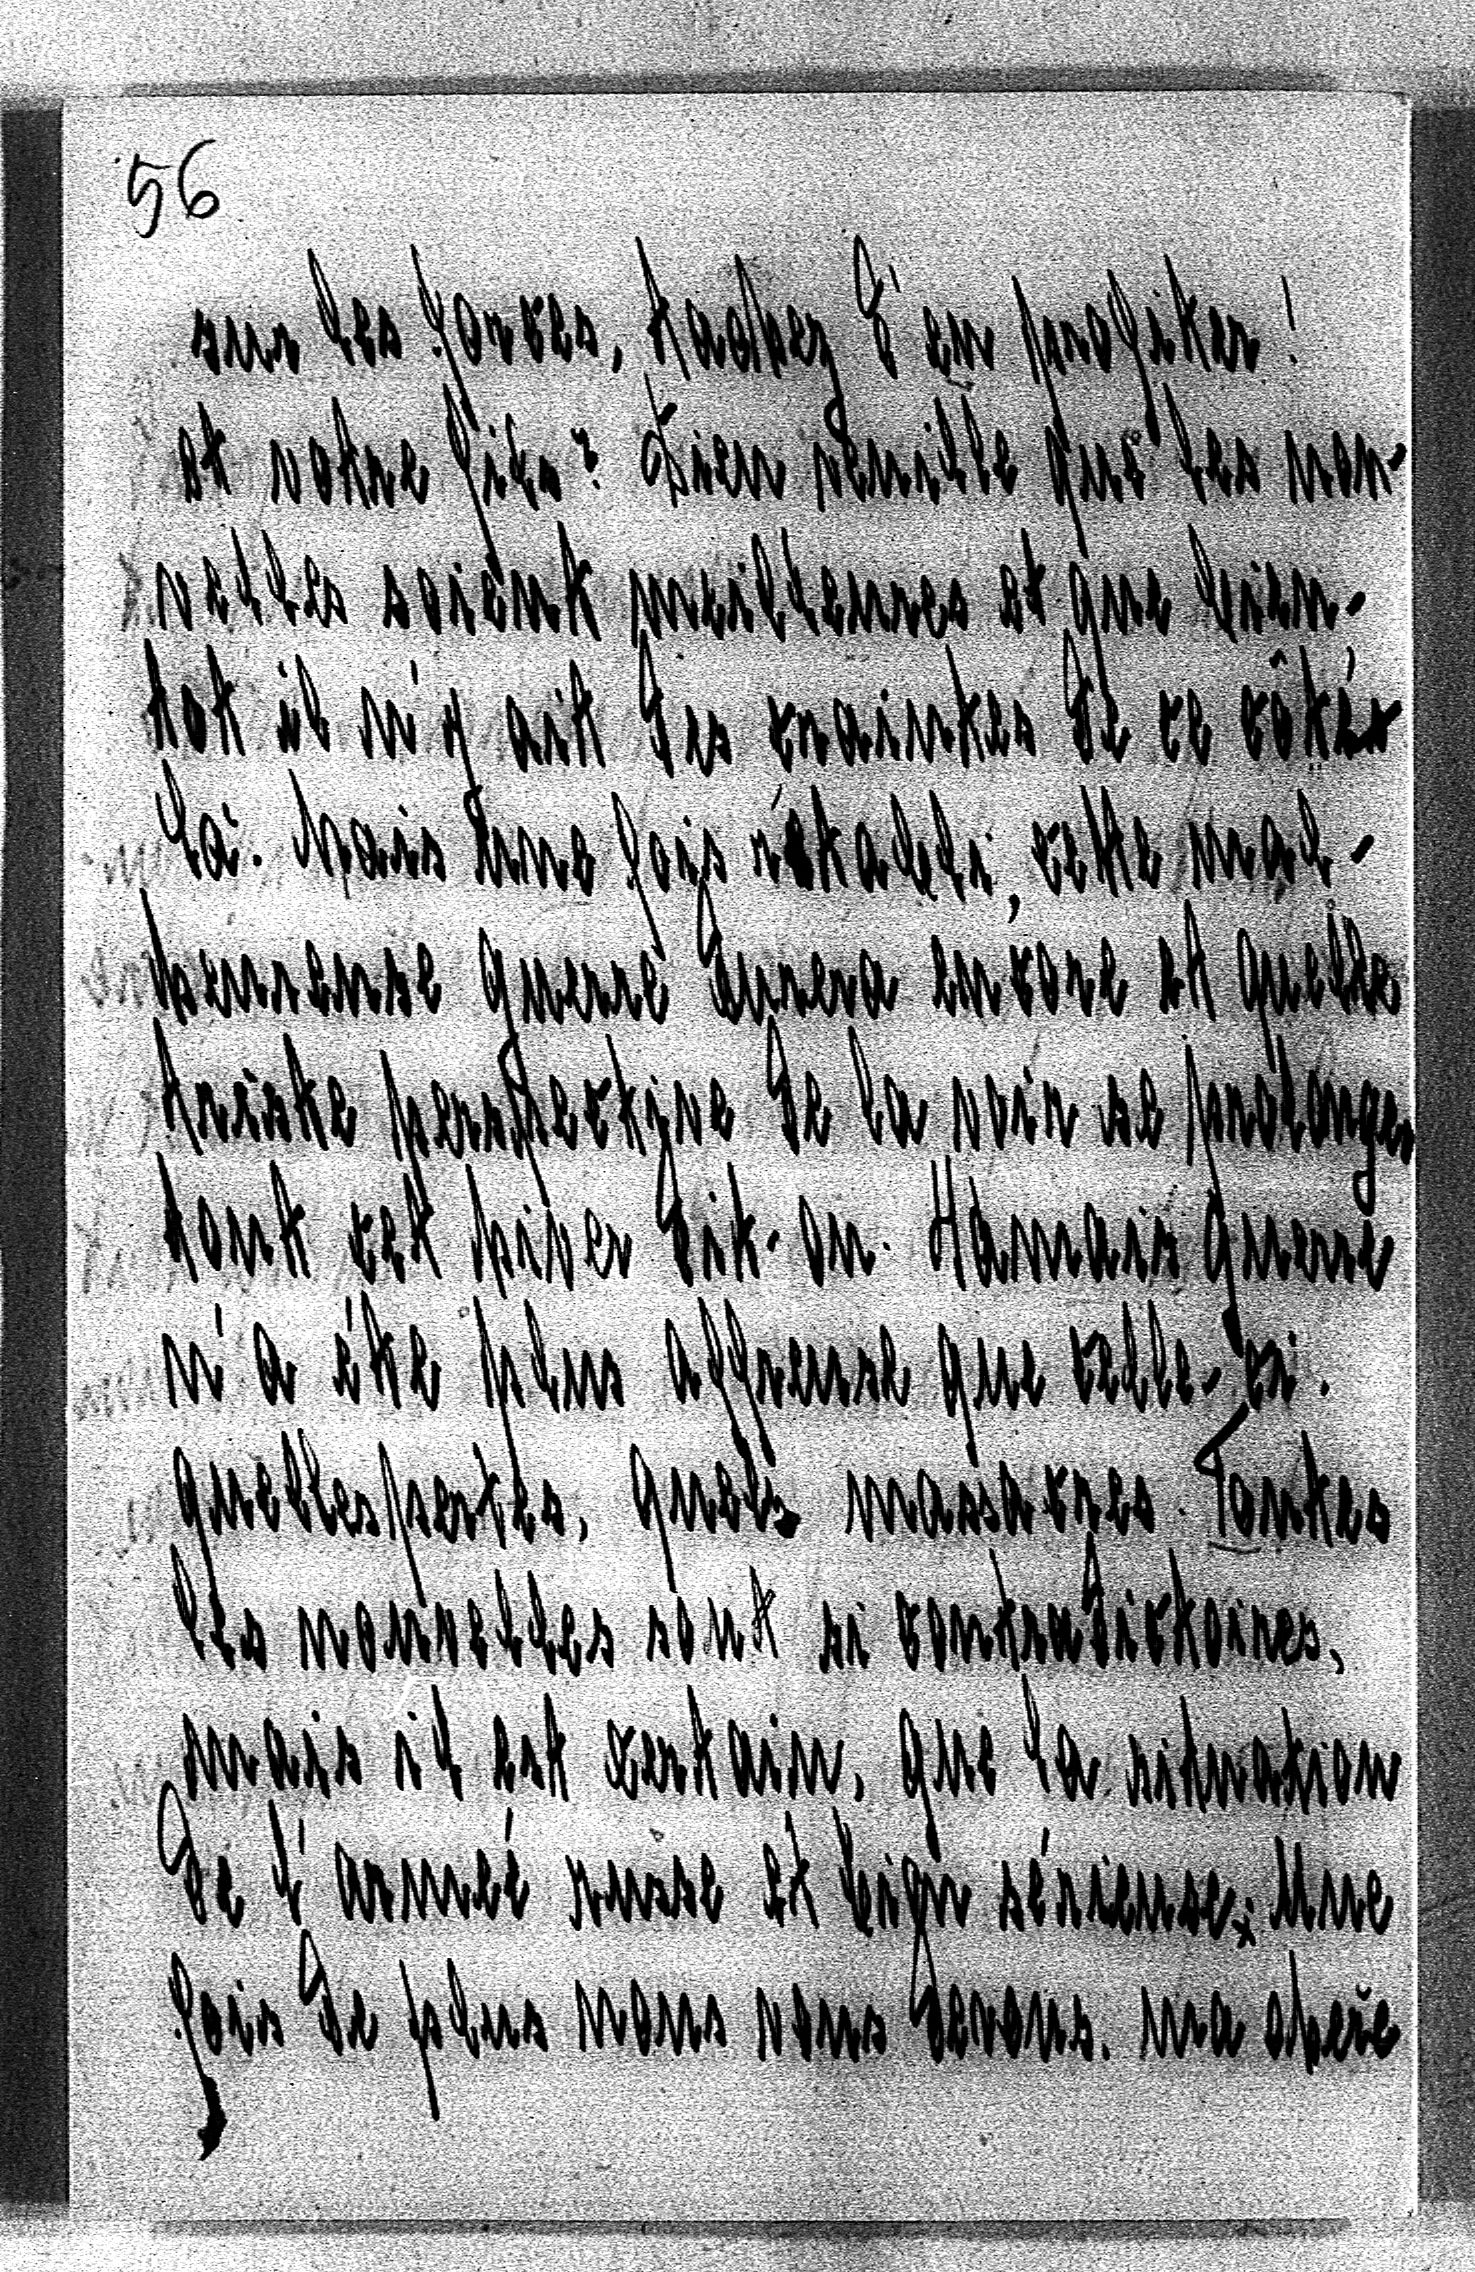 56
sur les forces, tachez d'en profiter!
et votre fils? Dieu veuille que les nou-
velles soient meilleures et que bien-
tot il n'y ait des craintes de ce côté
là. Mais une fois rétabli, cette mal-
heureuse guerre durera encore et quelle
triste perspective de la voir se prolonger
tout cet hiver dit-on. Jamais guerre
n'a été plus affreuse que celle-ci.
quelles pertes, quels massacres. Toutes
les nouvelles sont si contradictoires,
mais il est certain, que la situation
de l'armée russe et bien sérieuse; Une
fois de plus nous nous devons. ma chere